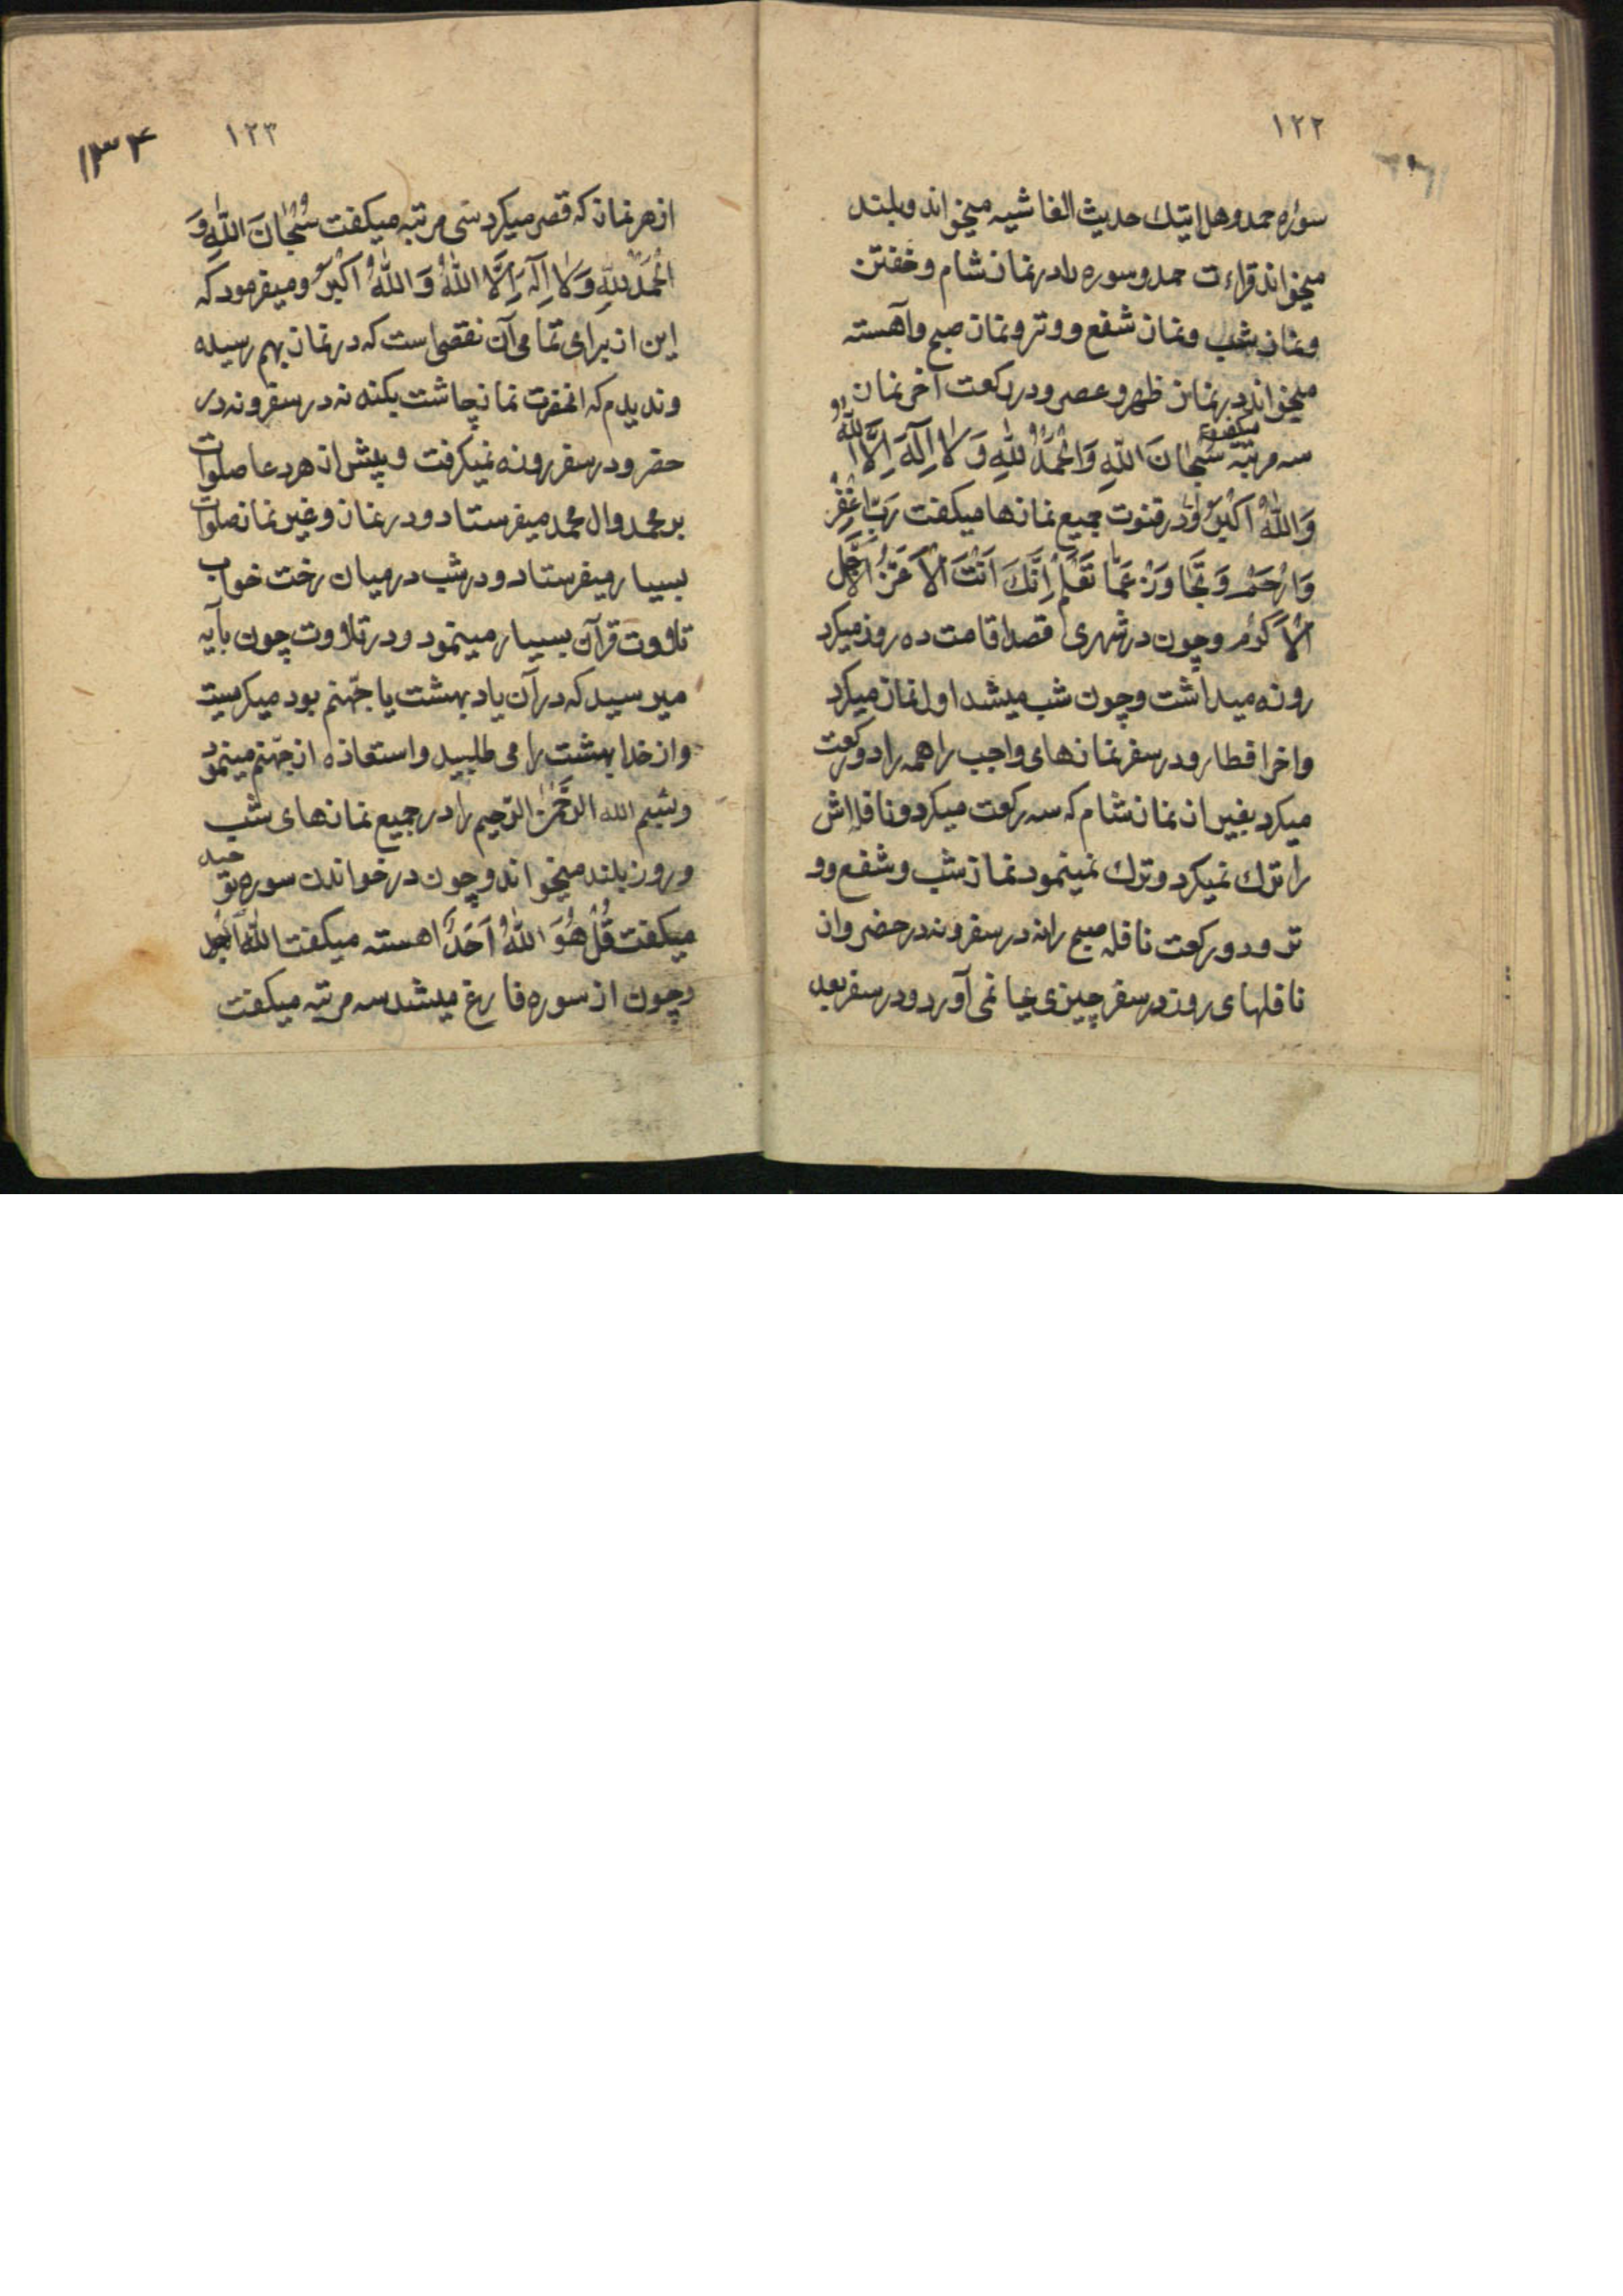 ۱۲۲
سوره حمد و هل اتیك حدیث الغاشیه میخواند و بلند
میخواند قراءت حمد و سوره را در نماز شام و خفتن
و نماز شب و نماز شفع و وتر و نماز صبح و آهسته
میخواند در نماز ظهر و عصر و در رکعت آخر نماز
سه مرتبه میگفت سُبْحَانَ اللّٰهِ وَ الْحَمْدُ لِلّٰهِ وَ لَا اِلٰهَ اِلَّا اللّٰهُ
وَ اللّٰهُ اَکْبَرُ و در قنوت جمیع نمازها میگفت رَبِّ اغْفِرْ
وَ ارْحَمْ وَ تَجَاوَزْ عَمَّا تَعْلَمُ اِنَّكَ اَنْتَ الْاَعَزُّ الْاَجَلُّ
الْاَکْرَمُ و چون در شهری قصد اقامت ده روز میکرد
روزه میداشت و چون شب میشد اول نماز میکرد
و اخر افطار و در سفر نمازهای واجب را همه را دو رکعت
میکرد بغیر از نماز شام که سه رکعت میکرد و نافلهاش
را ترك نمیکرد و ترك نمینمود نماز شب و شفع و و
تر و دو رکعت نافله صبح را نه در سفر و نه در حضر و از
نافلهای روز در سفر چیزی بجا نمی آورد و در سفر بعد
۱۲۳
۱۳۴
از هر نماز که قصر میکرد سی مرتبه میکفت سُبْحَانَ اللّٰهِ وَ
الْحَمْدُ لِلّٰهِ وَ لَا اِلٰهَ اِلَّا اللّٰهُ وَ اللّٰهُ اَکْبَرُ و میفرمود که
این از برای تمامی آن نقصی است که در نماز بهم رسیده
و ندیدم که انحضرت نماز چاشت بکند نه در سفر و نه در
حضر و در سفر روزه نمیکرفت و پیش از هر دعا صلوات
بر محمد وال محمد میفرستاد و در نماز و غیر نماز صلوات
بسیار میفرستاد و در شب در میان رخت خواب
تلاوت قرآن بسیار مینمود و در تلاوت چون بآیه
میرسید که در آن یاد بهشت یا جهنّم بود میکریست
و از خدا بهشت را می طلبید و استعاذه از جهنّم مینمود
و بسم الله الرّحمن الرّحیم را در جمیع نمازهای شب
و روز بلند میخواند و چون در خواندن سوره توحید
میکفت قُلْ هُوَ اللّٰهُ اَحَدٌ اهسته میکفت اللّٰهُ اَحَد
و چون از سوره فارغ میشد سه مرتبه میکفت